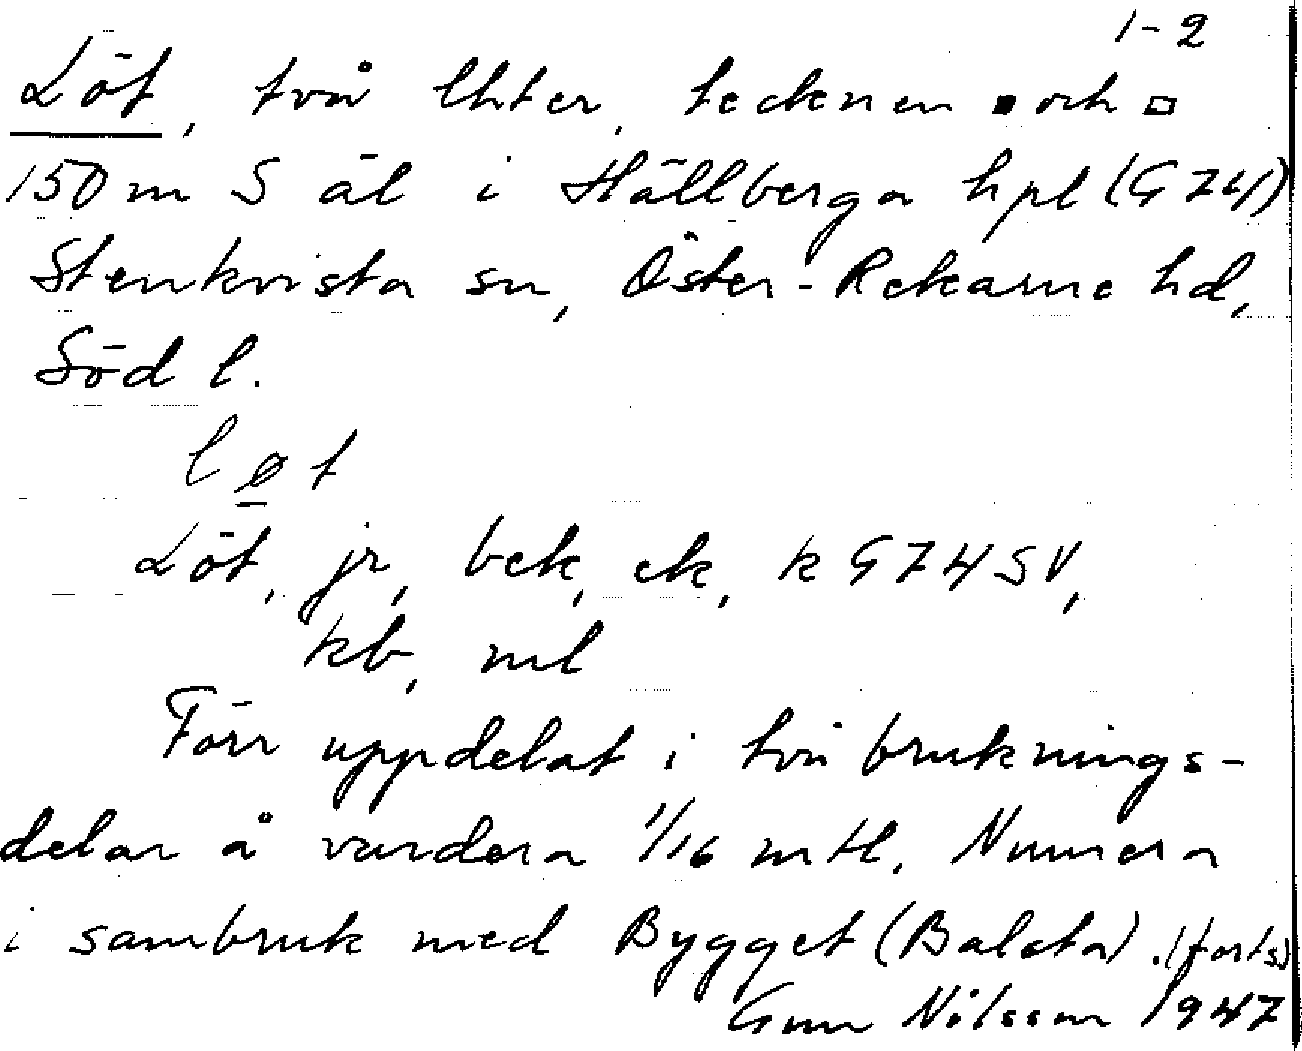 1-2
Löt, två lhter, tecknen ▪ och ▫
150 m S äl i Hållberga hpl (G74)
Stenkvista sn, Öster-Rekarne hd,
Söd l.
lø̱t
Löt, jr, bek, ek, k G74SV,
kb, ml
Förr uppdelat i två bruknings-
delar å vardera 1/16 mtl. Numera
i sambruk med Bygget (Balsta). (forts)
Gun Nilsson 1947